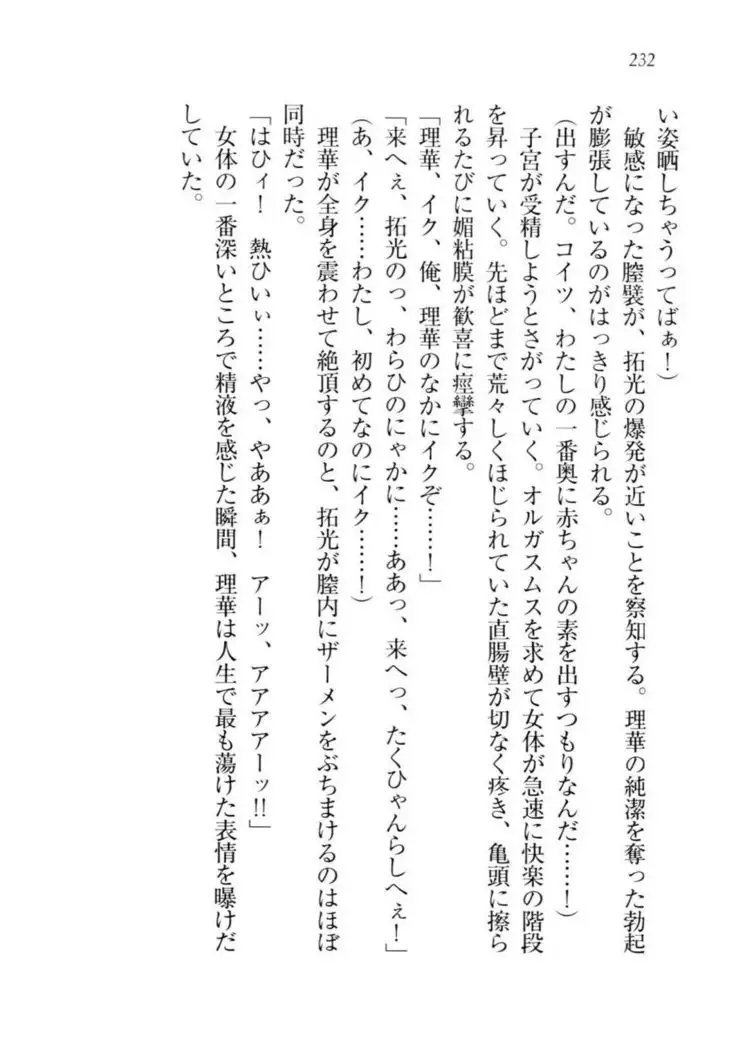 232
い姿晒しちゃうってばぁ！）
　敏感になった膣襞が、拓光の爆発が近いことを察知する。理華の純潔を奪った勃起
が膨張しているのがはっきり感じられる。
（出すんだ。コイツ、わたしの一番奥に赤ちゃんの素を出すつもりなんだ……！）
　子宮が受精しようとさがっていく。オルガスムスを求めて女体が急速に快楽の階段
を昇っていく。先ほどまで荒々しくほじられていた直腸壁が切なく疼き、亀頭に擦ら
れるたびに媚粘膜が歓喜に痙攣する。
「理華、イク、俺、理華のなかにイクぞ……！」
「来へぇ、拓光のっ、わらひのにゃかに……ああっ、来へっ、たくひゃんらしへぇ！」
（あ、イク……わたし、初めてなのにイク……！）
　理華が全身を震わせて絶頂するのと、拓光が膣内にザーメンをぶちまけるのはほぼ
同時だった。
「はひィ！　熱ひいぃ……やっ、やああぁ！　アーッ、アアアアーッ!!」
　女体の一番深いところで精液を感じた瞬間、理華は人生で最も蕩けた表情を曝けだ
していた。